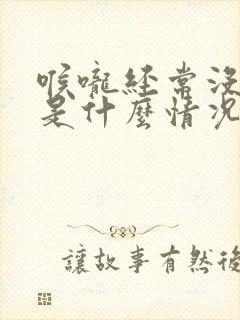 喉嚨經常沒
是什麼情況
讓故事有然後